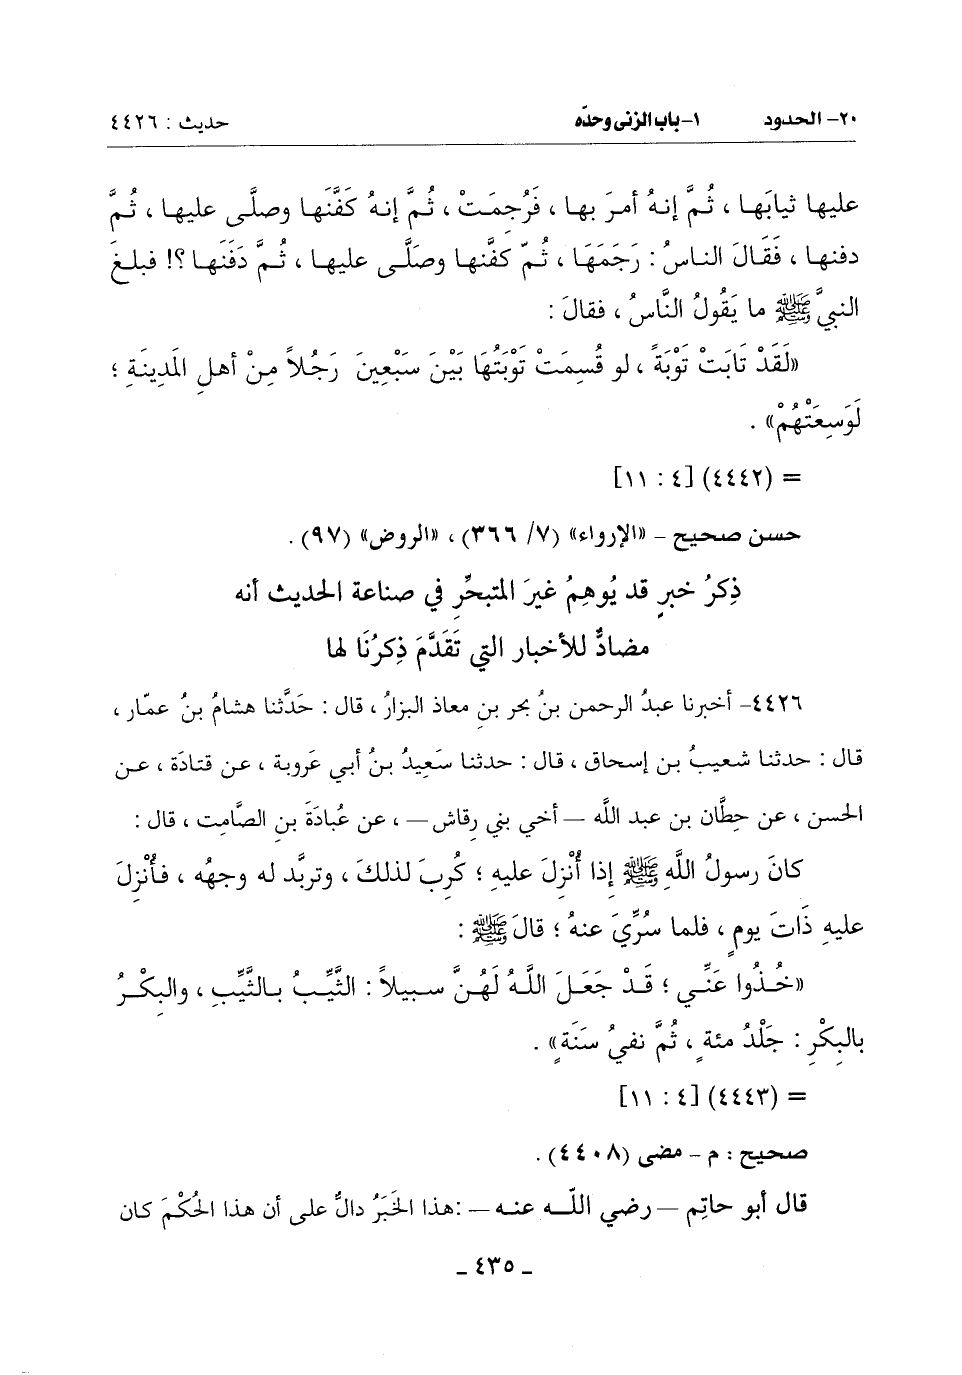 ٢٠- الحدود ١- باب الزنى وحدّه حديث : ٤٤٢٦
عليها ثيابَها ، ثُمَّ إنهُ أمرَ بها ، فَرُجِمَتْ ، ثُمَّ إنهُ كَفَّنَها وصلَّى عليها ، ثُمَّ
دفنها ، فَقَالَ الناسُ : رَجَمَهَا ، ثُمّ كفَّنها وصَلَّى عليها ، ثُمَّ دَفَنَها ؟! فبلغَ
النبيَّ ﷺ ما يَقُولُ النَّاسُ ، فقالَ :
«لَقَدْ تابَتْ تَوْبَةً ، لو قُسِمَتْ تَوْبَتُهَا بَيْنَ سَبْعِينَ رَجُلاً مِنْ أهلِ المَدِينَةِ ؛
لَوَسِعَتْهُمْ» .
= (٤٤٤٢) [٤ : ١١]
حسن صحيح - «الإرواء» (٧/ ٣٦٦) ، «الروض» (٩٧) .
ذِكرُ خبرٍ قد يُوهِمُ غيرَ المتبحِّرِ في صناعة الحديث أنه
مضادٌّ للأخبار التي تَقَدَّمَ ذِكرُنَا لها
٤٤٢٦- أخبرنا عبدُ الرحمن بنُ بحرِ بنِ معاذ البزارُ ، قال : حَدَّثنا هشامُ بنُ عمّار ،
قال : حدثنا شعيبُ بن إسحاق ، قال : حدثنا سَعِيدُ بنُ أبي عَروبة ، عن قتادَة ، عن
الحسن ، عن حِطَّان بن عبد اللَّه – أخي بني رِقاش – ، عن عُبادَةَ بنِ الصَّامت ، قال :
كانَ رسولُ اللَّهِ ﷺ إذا أُنْزِلَ عليهِ ؛ كُرِبَ لذلكَ ، وتربَّد له وجهُه ، فأُنْزِلَ
عليهِ ذَاتَ يومٍ ، فلما سُرِّيَ عنهُ ؛ قالَ ﷺ :
«خُذُوا عَنِّي ؛ قَدْ جَعَلَ اللَّهُ لَهُنَّ سبيلاً : الثَّيِّبُ بالثَّيِّبِ ، والبِكْرُ
بالبِكْرِ : جَلْدُ مئةٍ ، ثُمَّ نفيُ سَنَةٍ» .
= (٤٤٤٣) [٤ : ١١]
صحيح : م - مضى (٤٤٠٨) .
قال أبو حاتِم – رضي اللَّه عنه – :هذا الخَبَرُ دالٌّ على أن هذا الحُكْمَ كان
ـ ٤٣٥ ـ